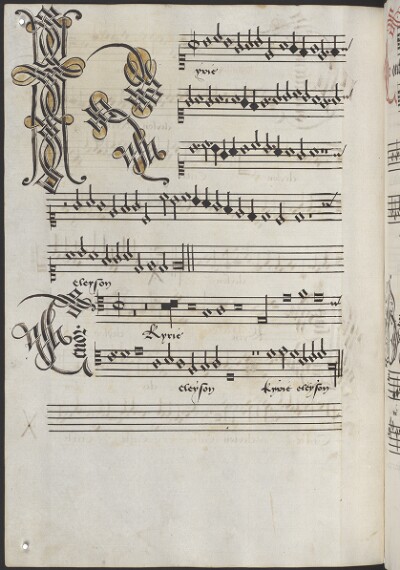 Kyrie
eleyson
Tenor
Kyrie
eleyson Kyrie eleyson